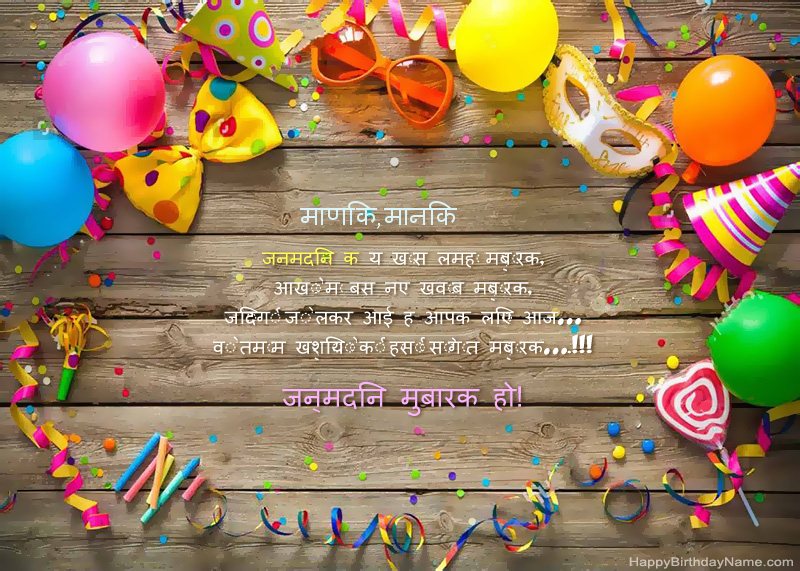 माणकि,मानकि
जनमदनि क य ख़ास लमहा मुबारक,
आखों में बसे नए ख्वाब मुबारक,
जदिंगी जो लेकर आई है आपके लिए आज...
वो तमाम खुशियों की हसीं सौगात मुबारक...!!!
जन्मदनि मुबारक हो!
HappyBirthdayName.com